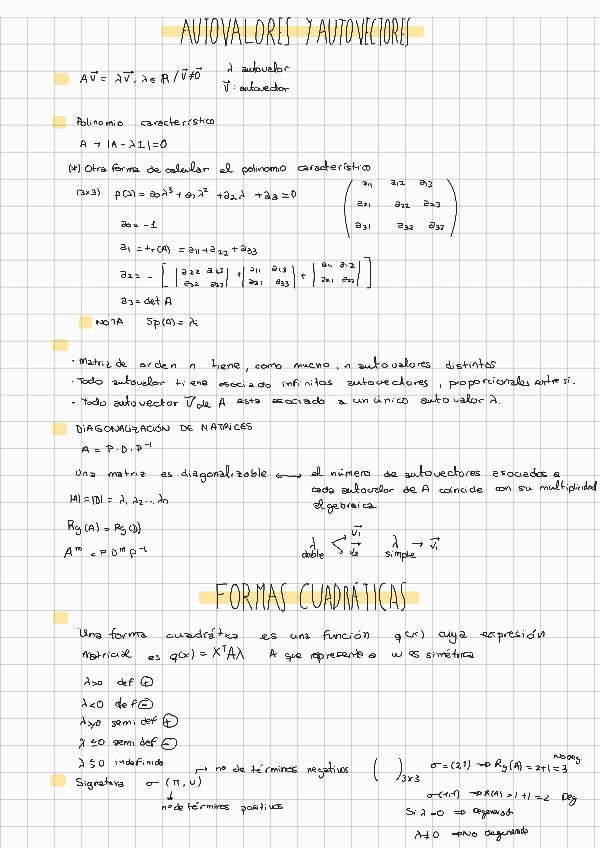 AUTOVALORES Y AUTOVECTORES
AV⃗ = λV⃗, λ∈ℝ / V⃗≠0⃗
λ autovalor
V⃗: autovector
Polinomio característico
A → |A - λI|=0
(*) Otra forma de calcular el polinomo característico
(3x3) p(λ) = a₀λ³ + a₁λ² + a₂λ + a₃ = 0
a₁₁ a₁₂ a₁₃
a₂₁ a₂₂ a₂₃
a₃₁ a₃₂ a₃₃
a₀ = -1
a₁ = tr(A) = a₁₁+a₂₂+a₃₃
a₂ = - [ |a₂₂ a₂₃; a₃₂ a₃₃| + |a₁₁ a₁₃; a₃₁ a₃₃| + |a₁₁ a₁₂; a₂₁ a₂₂| ]
a₃ = det A
NOTA Sp(A) = λi
· Matriz de orden n tiene, como mucho, n autovalores distintos
· Todo autovalor tiene asociado infinitos autovectores, proporcionales entre si.
· Todo autovector V⃗ de A esta asociado a un único autovalor λ.
DIAGONALIZACIÓN DE MATRICES
A = P · D · P⁻¹
Una matriz es diagonalizable ⟷ el número de autovectores asociados a
cada autovalor de A coincide con su multiplicidad
algebraica
|A| = |D| = λ₁ λ₂ ... λn
Rg(A) = Rg(D)
Aᵐ = P Dᵐ P⁻¹
λ doble < V⃗₁ V⃗₂
λ simple → V⃗₁
FORMAS CUADRÁTICAS
Una forma cuadrática es una función q(x) cuya expresión
matricial es q(x) = XᵀAλ A que representa a w es simétrica
λ>0 def ⊕
λ<0 def ⊖
λ≥0 semi def ⊕
λ≤0 semi def ⊖
λ≶0 indefinida
Signatura σ (π, υ)
→ no de términos negativos
no de términos positivos
( )3x3
σ = (2,1) ⇒ Rg(A) = 2+1 = 3
No deg.
σ=(1,1) ⇒ R(A) = 1+1 = 2 Deg
Si λ=0 ⇒ degenerada
λ≠0 ⇒ No degenerada